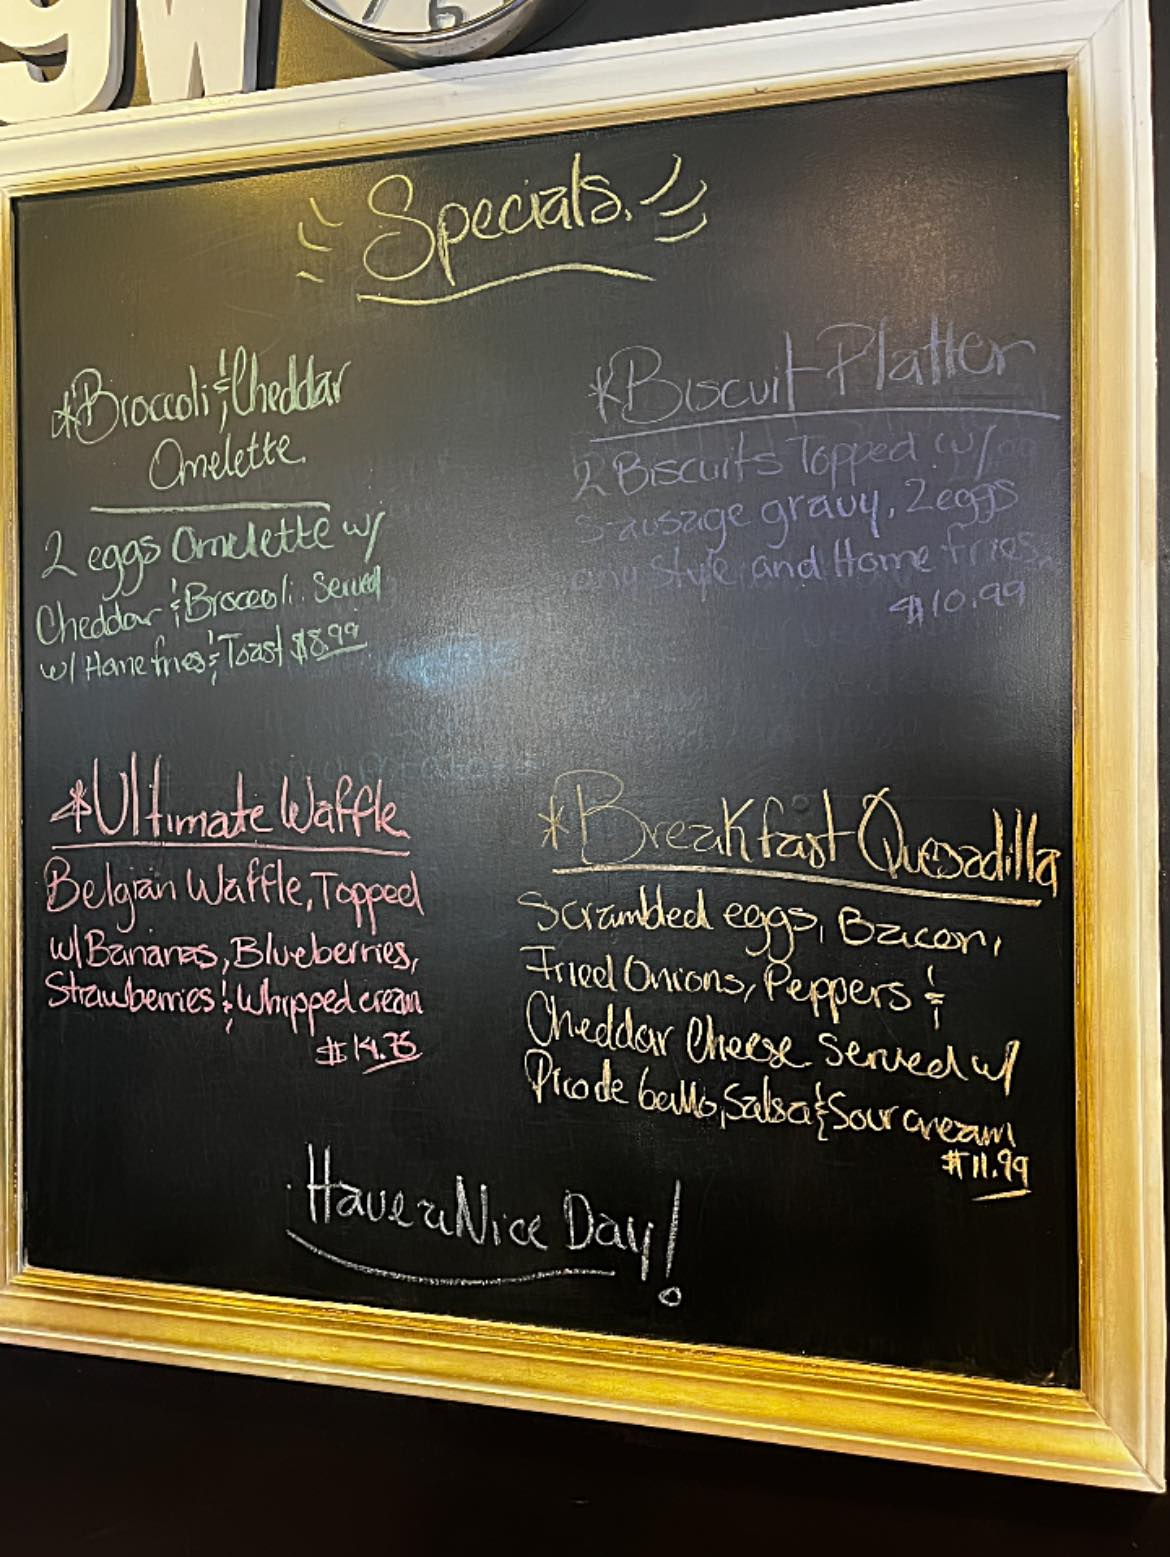 9W
7 6
Specials.
*Broccoli & Cheddar
Omelette.
2 eggs Omelette w/
Cheddar & Broccoli. Served
w/ Home fries & Toast $8.99
*Biscuit Platter
2 Biscuits Topped w/
Sausage gravy, 2 eggs
any Style, and Home fries.
$10.99
*Ultimate Waffle
Belgian Waffle, Topped
w/ Bananas, Blueberries,
Strawberries & Whipped cream
$14.75
*Breakfast Quesadilla
Scrambled eggs, Bacon,
Fried Onions, Peppers &
Cheddar Cheese Served w/
Pico de Gallo, Salsa & Sour cream
$11.99
Have a Nice Day!